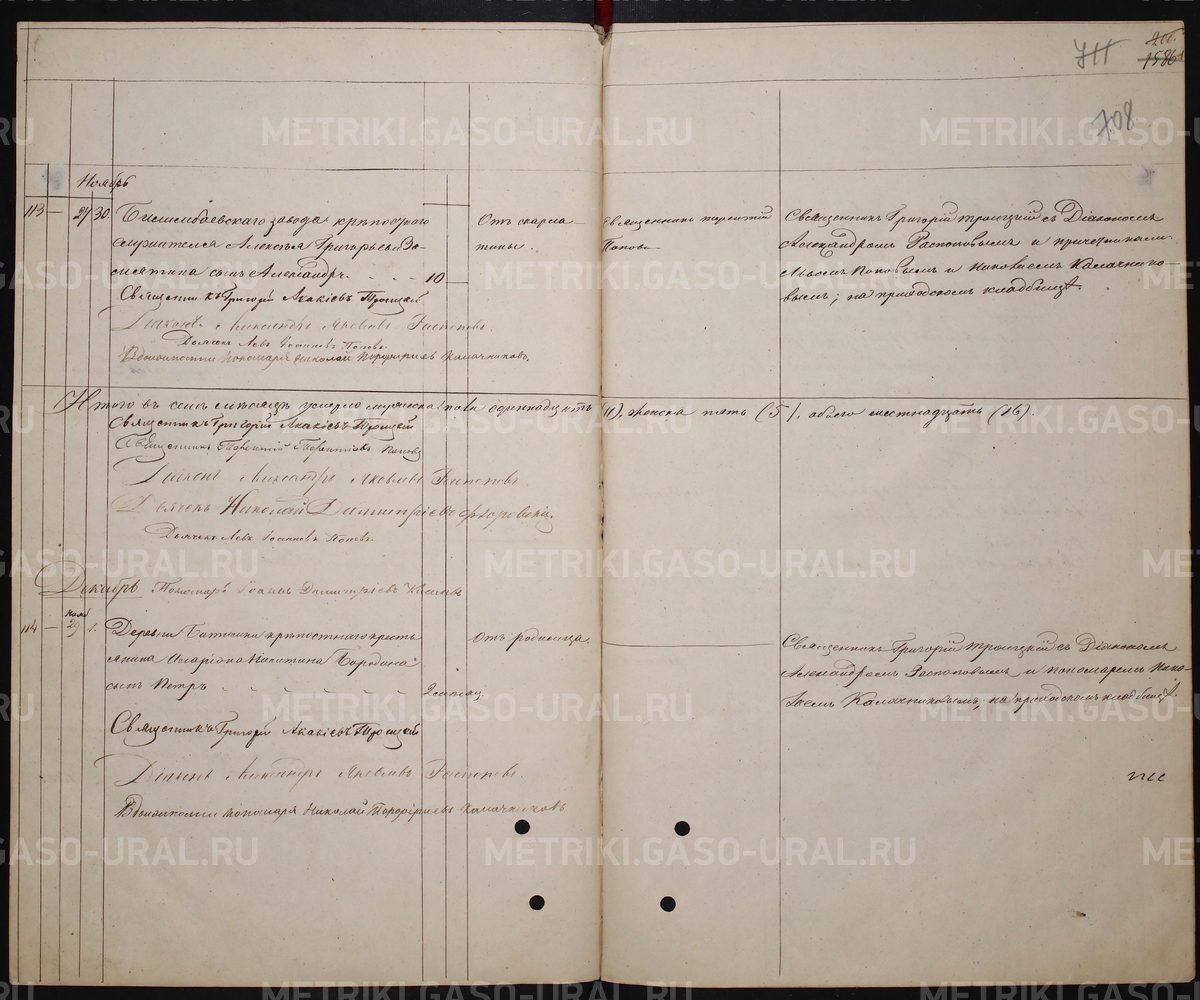 711
1586
708
Ноябрь
113 — 27 30. Билимбаевскаго завода крѣпостного
служителя Алексѣя Григорьева За-
мятина сынъ Александръ. - - - 10 —
Отъ скарла-
тины.
Священникъ Терентій
Поповъ
Священникъ Григорій Троицкій съ Діакономъ
Александромъ Распоповымъ и причетниками
Львомъ Поповымъ и Николаемъ Калачнико-
вымъ; на приходскомъ кладбищѣ.
Священникъ Григорій Акакіевъ Троицкій
Діаконъ Александръ Яковлевъ Распоповъ.
Дьячекъ Левъ Іоанновъ Поповъ.
В должности пономаря Николай Порфиріевъ Калачниковъ.
Итого въ семъ мѣсяцѣ умерло мужеска пола одиннадцать (11), женска пять (5), обоего шестнадцать (16).
Священникъ Григорій Акакіевъ Троицкій
Священникъ Терентій Терентіевъ Поповъ
Діаконъ Александръ Яковлевъ Распоповъ
Дьячекъ Николай Димитріевъ
Дьячекъ Левъ Іоанновъ Поповъ.
Декабрь Пономарь Іоаннъ Димитріевъ
114 — Нояб 29 1. Деревни крѣпостнаго кресть-
янина Никитина Бородина
сынъ Петръ - - - - - - - 2 мѣсяц.
Отъ родимца.
Священникъ Григорій Троицкій съ Діакономъ
Александромъ Распоповымъ и пономаремъ Нико-
лаемъ Калачниковымъ; на приходскомъ кладбищѣ.
Священникъ Григорій Акакіевъ Троицкій
Діаконъ Александръ Яковлевъ Распоповъ.
В должности пономаря Николай Порфиріевъ Калачниковъ
METRIKI.GASO-URAL.RU